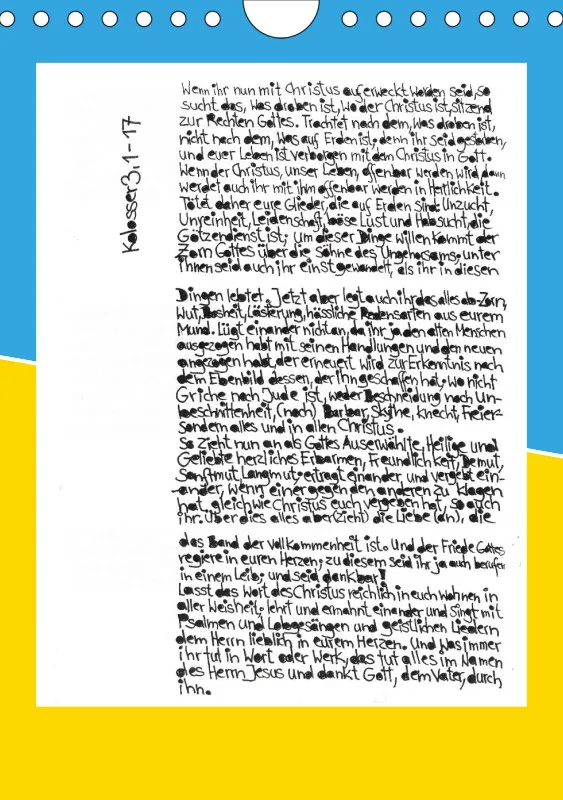 Kolosser 3, 1-17
Wenn ihr nun mit Christus auferweckt worden seid, so
sucht das, was droben ist, wo der Christus ist, sitzend
zur Rechten Gottes. Trachtet nach dem, was droben ist,
nicht nach dem, was auf Erden ist; denn ihr seid gestorben,
und euer Leben ist verborgen mit dem Christus in Gott.
Wenn der Christus, unser Leben, offenbar werden wird, dann
werdet auch ihr mit ihm offenbar werden in Herrlichkeit.
Tötet daher eure Glieder, die auf Erden sind: Unzucht,
Unreinheit, Leidenschaft, böse Lust und Habsucht, die
Götzendienst ist; um dieser Dinge willen kommt der
Zorn Gottes über die Söhne des Ungehorsams; unter
ihnen seid auch ihr einst gewandelt, als ihr in diesen
Dingen lebtet. Jetzt aber legt auch ihr das alles ab - Zorn,
Wut, Bosheit, Lästerung, hässliche Redensarten aus eurem
Mund. Lügt einander nicht an, da ihr ja den alten Menschen
ausgezogen habt mit seinen Handlungen und den neuen
angezogen habt, der erneuert wird zur Erkenntnis nach
dem Ebenbild dessen, der ihn geschaffen hat; wo nicht
Griche noch Jude ist, weder Beschneidung noch Un-
beschnittenheit, (noch) Barbar, Skythe, Knecht, Freier-
sondern alles und in allen Christus.
So zieht nun an als Gottes Auserwählte, Heilige und
Geliebte herzliches Erbarmen, Freundlichkeit, Demut,
Sanftmut, Langmut; ertragt einander, und vergebt ein-
ander, wenn einer gegen den anderen zu klagen
hat, gleichwie Christus euch vergeben hat, so auch
ihr. Über dies alles aber (zieht) die Liebe (an), die
das Band der Vollkommenheit ist. Und der Friede Gottes
regiere in euren Herzen; zu diesem seid ihr ja auch berufen
in einem Leib; und seid dankbar!
Lasst das Wort des Christus reichlich in euch wohnen in
aller Weisheit; lehrt und ermahnt einander und singt mit
Psalmen und Lobgesängen und geistlichen Liedern
dem Herrn lieblich in eurem Herzen. Und was immer
ihr tut in Wort oder Werk, das tut alles im Namen
des Herrn Jesus und dankt Gott, dem Vater, durch
ihn.